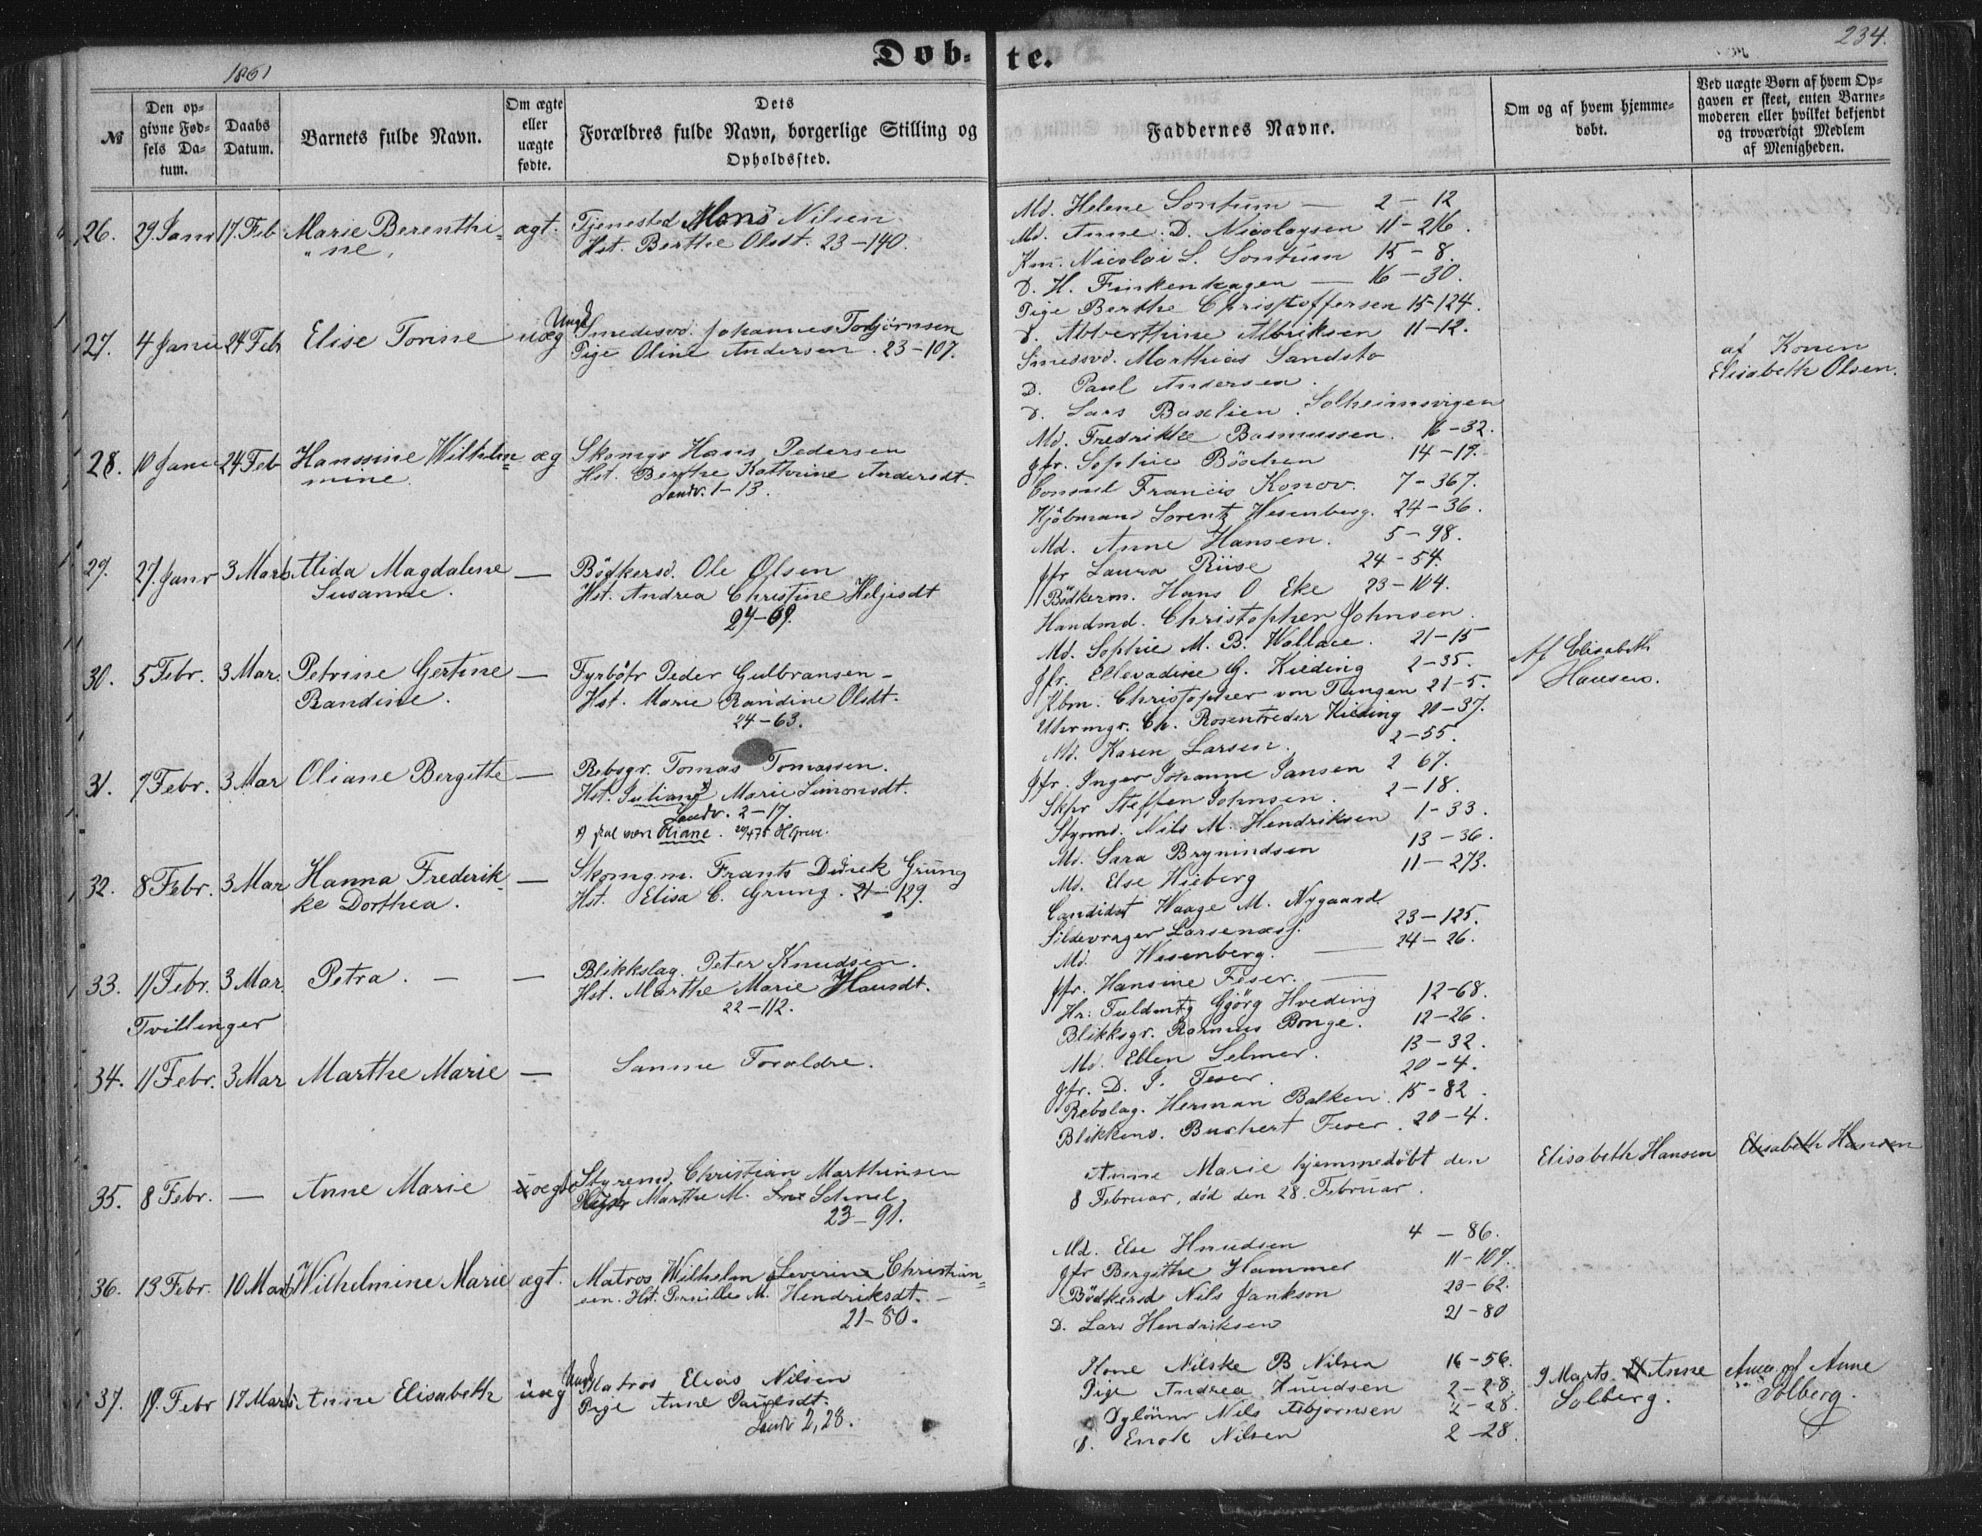 234.
1861
Døb- te.
№
Den op-
givne Fød-
sels Da-
tum.
Daabs
Datum.
Barnets fulde Navn.
Om ægte
eller
uægte
fødte.
Dets
Forældres fulde Navn, borgerlige Stilling og
Opholdssted.
Faddernes Navne.
Om og af hvem hjemme-
døbt.
Ved uægte Børn af hvem Op-
gaven er skeet, enten Barne-
moderen eller hvilket bekjendt
og troværdigt Medlem
af Menigheden.
26. 29 Janr 17. Feb Marie Berenthi- ægt. Tjenested Mons Nilsen
"ne, Hst. Berthe Olsdt. 23-140.
Md. Helene Sontum — 2 - 12
Md. Anne D. Nicolaysen 11 - 216.
Km. Nicolai S. Sontum 15 - 8.
D. H. Finkenhagen — 16 - 30.
27. 4 Janu 24 Feb Elise Torine uæg Ung Smedesvd. Johannes Torbjørnsen
Pige Oline Andersen. 23-107.
Pige Berthe Christoffersen 15-124.
D. Abberthine Albriksen 11-12.
Smessvd. Marthias Sandsto
D. Paul Andersen.
D. Lars Baselien. Solheimsvigen
af Konen
Elisabeth Olsen.
28. 10 Janu 24 Feb Hansine Wilhel= æg Skomgr Hans Pedersen
mine. Hst. Berthe Kathrine Andersdt.
Sandv. 1-13.
Md. Fredrikke Rasmussen. 16-32.
Jfr. Sophie Böschen 14-19.
Consul Francis Konov. 7-367.
Kjöbmand Lorentz Wesenberg. 24-36.
29. 27. Janr 3 Marts Alida Magdalene — Bödkersd. Ole Olsen
Susanne. Hst. Andrea Christine Heljesdt
24-69.
Md. Anne Hansen. 5-98.
Jfr Laura Riise 24-54.
Bödkerm. Hans O Eke 23-104.
Handmd. Christopher Johnsen.
30. 5 Febr. 3 Mar. Petrine Gertine — Fyrböfr Peder Gulbransen -
Randine. Hst. Marie Randine Olsdt.
24-63.
Md. Sophie M. B. Wallace. 21-15
Jfr. Ellevadine G. Kieding 2-35.
Kbm. Christopher von Tangen 21-5.
Uhrmgr. Ch. Rosentreder Kieding 20-37.
Af Elisabeth
Hansen.
31. 7 Febr. 3 Mar Oliane Bergitte — Rebsgr. Tomas Tomassen.
Hst. Juliane Marie Simonsdt.
Sandv. 2-17.
Oliane.
Md. Karen Larsen. 2-55.
Jfr. Inger Johanne Jansen 2 67.
Skpr Steffen Johnsen. 2-18.
Styrmd. Nils M. Hendriksen 1-33.
32. 8 Febr. 3 Mar Hanna Frederik- — Skomg.m. Frants Didrick Grung
ke Dorthea. Hst. Elisa C. Grung. 21-129.
Md. Sara Brynindsen 13-36.
Md. Else Wieberg 11-273.
Candidat Waage M. Nygaard
Sildevrager Larsenæs j. 23-125.
33. 11 Febr. 3 Mar. Petra. — — Blikkslag. Peter Knudsen.
Hst. Marthe Marie Hansdt.
22-112.
Md. Wesenberg. — 24-26.
Jfr. Hansine Feser. —
Hr. Fuldmtg Gjörg Hveding 12-68.
Blikksgr. Rasmus Bonge. 12-26.
Tvillinger
34. 11 Febr. 3 Mar Marthe Marie — Samme Forældre.
Md. Ellen Selmer. 13-32.
Jfr. D. J. Feser. 20-4.
Rebslag. Herman Balken. 15-82.
Blikkens. Buchert Feser. 20-4.
35. 8 Febr. — Anne Marie uægte Styrmd. Christian Marthinsen
Marthe M. Schnel.
23-91.
Anne Marie hjemmedøbt den
8 Februar, død den 28. Februar.
Elisabeth Hansen Elisabeth Hansen
36. 13 Febr. 10 Marts Wilhelmine Marie ægt. Matros Wilhelm Severin Christian=
sen. Hst. Pernille M. Hendriksdt.
21-80.
Md. Else Knudsen 4 - 86.
Jfr Bergithe Hammer 11-107.
Bödkersd Nils Jankson 23-62.
D. Lars Hendriksen 21-80
37. 19. Febr 17 Marts Anne Elisabeth uæg Ung Matros Elias Nilsen
Pige Anne Paulsdt.
Sandv 2,28.
Kone Nilske B Nilsen 16-56.
Pige Andrea Knudsen 2-28.
Nils Asbjornsen 2-28.
D. Enok Nilsen 2-28.
9 Marts. Anne
Solberg.
af Anne
Solberg.